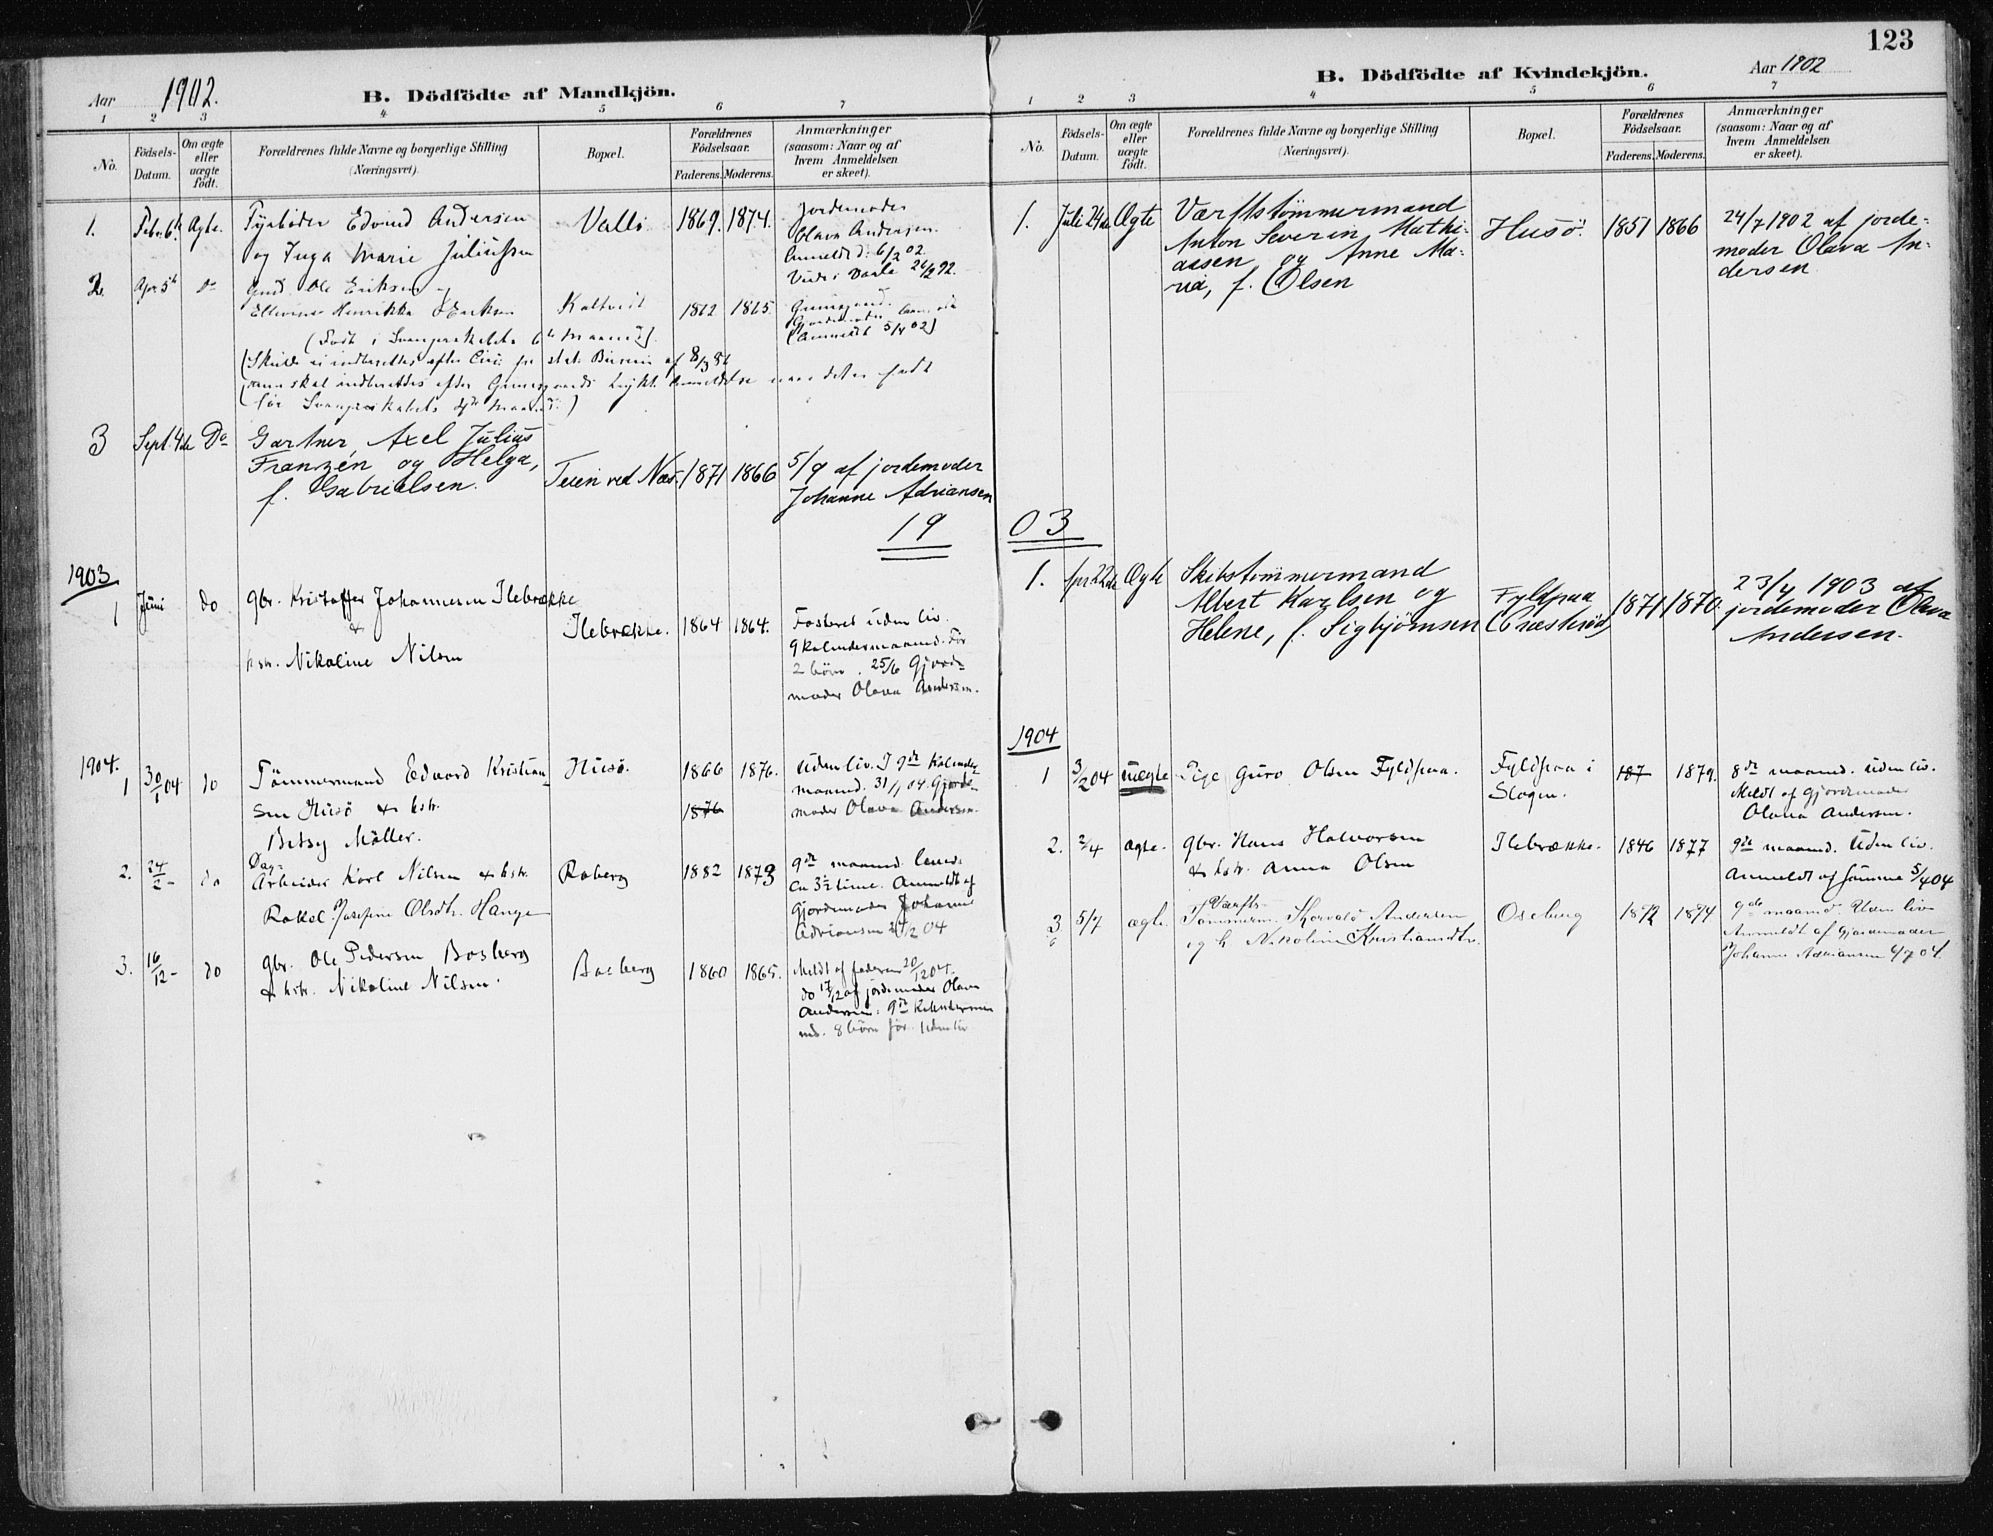 Aar 1902.
B. Dödfödte af Mandkjön.
1 2 3 4 5 6 7
No.
Födsels-
Datum.
Om ægte
eller
uægte
födt.
Forældrenes fulde Navne og borgerlige Stilling
(Næringsvei).
Bopæl.
Forældrenes
Födselsaar.
Faderens. Moderens.
Anmærkninger
(saasom: Naar og af
hvem Anmeldelsen
er skeet).
1. Febr. 6te Ægte. Fyrböder Edvind Andersen
og Inga Marie Juliussen
Vallö 1869. 1874.
Jordemoder
Olava Andersen.
Anmeldt d. 6/2 02.
2. Apr 5te do Gmd. Ole Eriksen
Henrikke Eriksen
1862 1865.
(Anmeldt 5/4 02)
3 Sept. 4de Do Gartner Axel Julius
Franzén og Helga,
f. Gabrielsen.
Teien ved Næs. 1871 1866
5/9 af jordemoder
Johanne Adriansen
1903
1 Juni do gbr. Kristoffer Johannesen Ilebrække
&
hstr. Nikoline Nilsen
Ilebrække. 1864 1864.
Fosteret uden liv.
9 kalendermaaned. Før
2 børn. 25/6 Gjord-
moder Olava Andersen.
1904.
1 30/1 04 do Tömmermand Edvard Kristian-
sen Husö & hstr.
Betsy Möller.
Husö. 1866 1876.
1876
Uden liv. I 9de Kalender
maaned. 31/1 04. Gjord-
moder Olava Andersen.
2. 24/2 - do Dag-
Arbeider Karl Nilsen & hstr.
Rakel Josefine Olsdtr. Hange
Roberg 1882 1873
9de maaned. levede
ca 3½ time. Anmeldt af
Gjordemoder Johanne
Adriansen 04
3. 16/12 - do gbr. Ole Pedersen Basberg
& hstr. Nikoline Nilsen.
Basberg 1860 1865.
Meldt af faderen 20/12 04.
do 17/12 af jordemoder Olava
Andersen: 9de Kalenderma
ned. 8 børn før. Uden liv
123
B. Dödfödte af Kvindekjön.
Aar 1902
1 2 3 4 5 6 7
No.
Födsels-
Datum.
Om ægte
eller
uægte
födt.
Forældrenes fulde Navne og borgerlige Stilling
(Næringsvei).
Bopæl.
Forældrenes
Födselsaar.
Faderens. Moderens.
Anmærkninger
(saasom: Naar og af
hvem Anmeldelsen
er skeet).
1. Juli 24de Ægte Værftstömmermand
Anton Severin Mathi-
assen og Anne Ma-
ria, f. Olsen
Husö. 1851 1866
24/7 1902 af jorde-
moder Olava An-
dersen.
1903
1. Apr 22de Ægte Skibstömmermand
Albert Karlsen og
Helene, f. Sigbjörnsen
Fyldpaa
(Præsterød)
1871 1870.
23/4 1903 af
jordemoder Olava
Andersen.
1904
1 3/2 04 uægte Pige Guro Olsen Fyldpaa.
Fyldpaa i
Slagen.
187 1879.
8de maaned. uden liv.
Meldt af Gjordemoder
Olava Andersen.
2. 2/4 ægte. gbr. Hans Halvorsen
& hstr. Anna Olsen
Ilebrække. 1846 1877
9de maaned. Uden liv.
Anmeldt af samme 5/4 04
3 5/7 ægte. Værfts-
Tömmerm. Thorvald Andersen
og h. Nikoline Kristiansdtr.
Oseberg 1872 1874
9de maaned. Uden liv
Anmeldt af Gjordemoder
Johanne Adriansen 4/7 04.